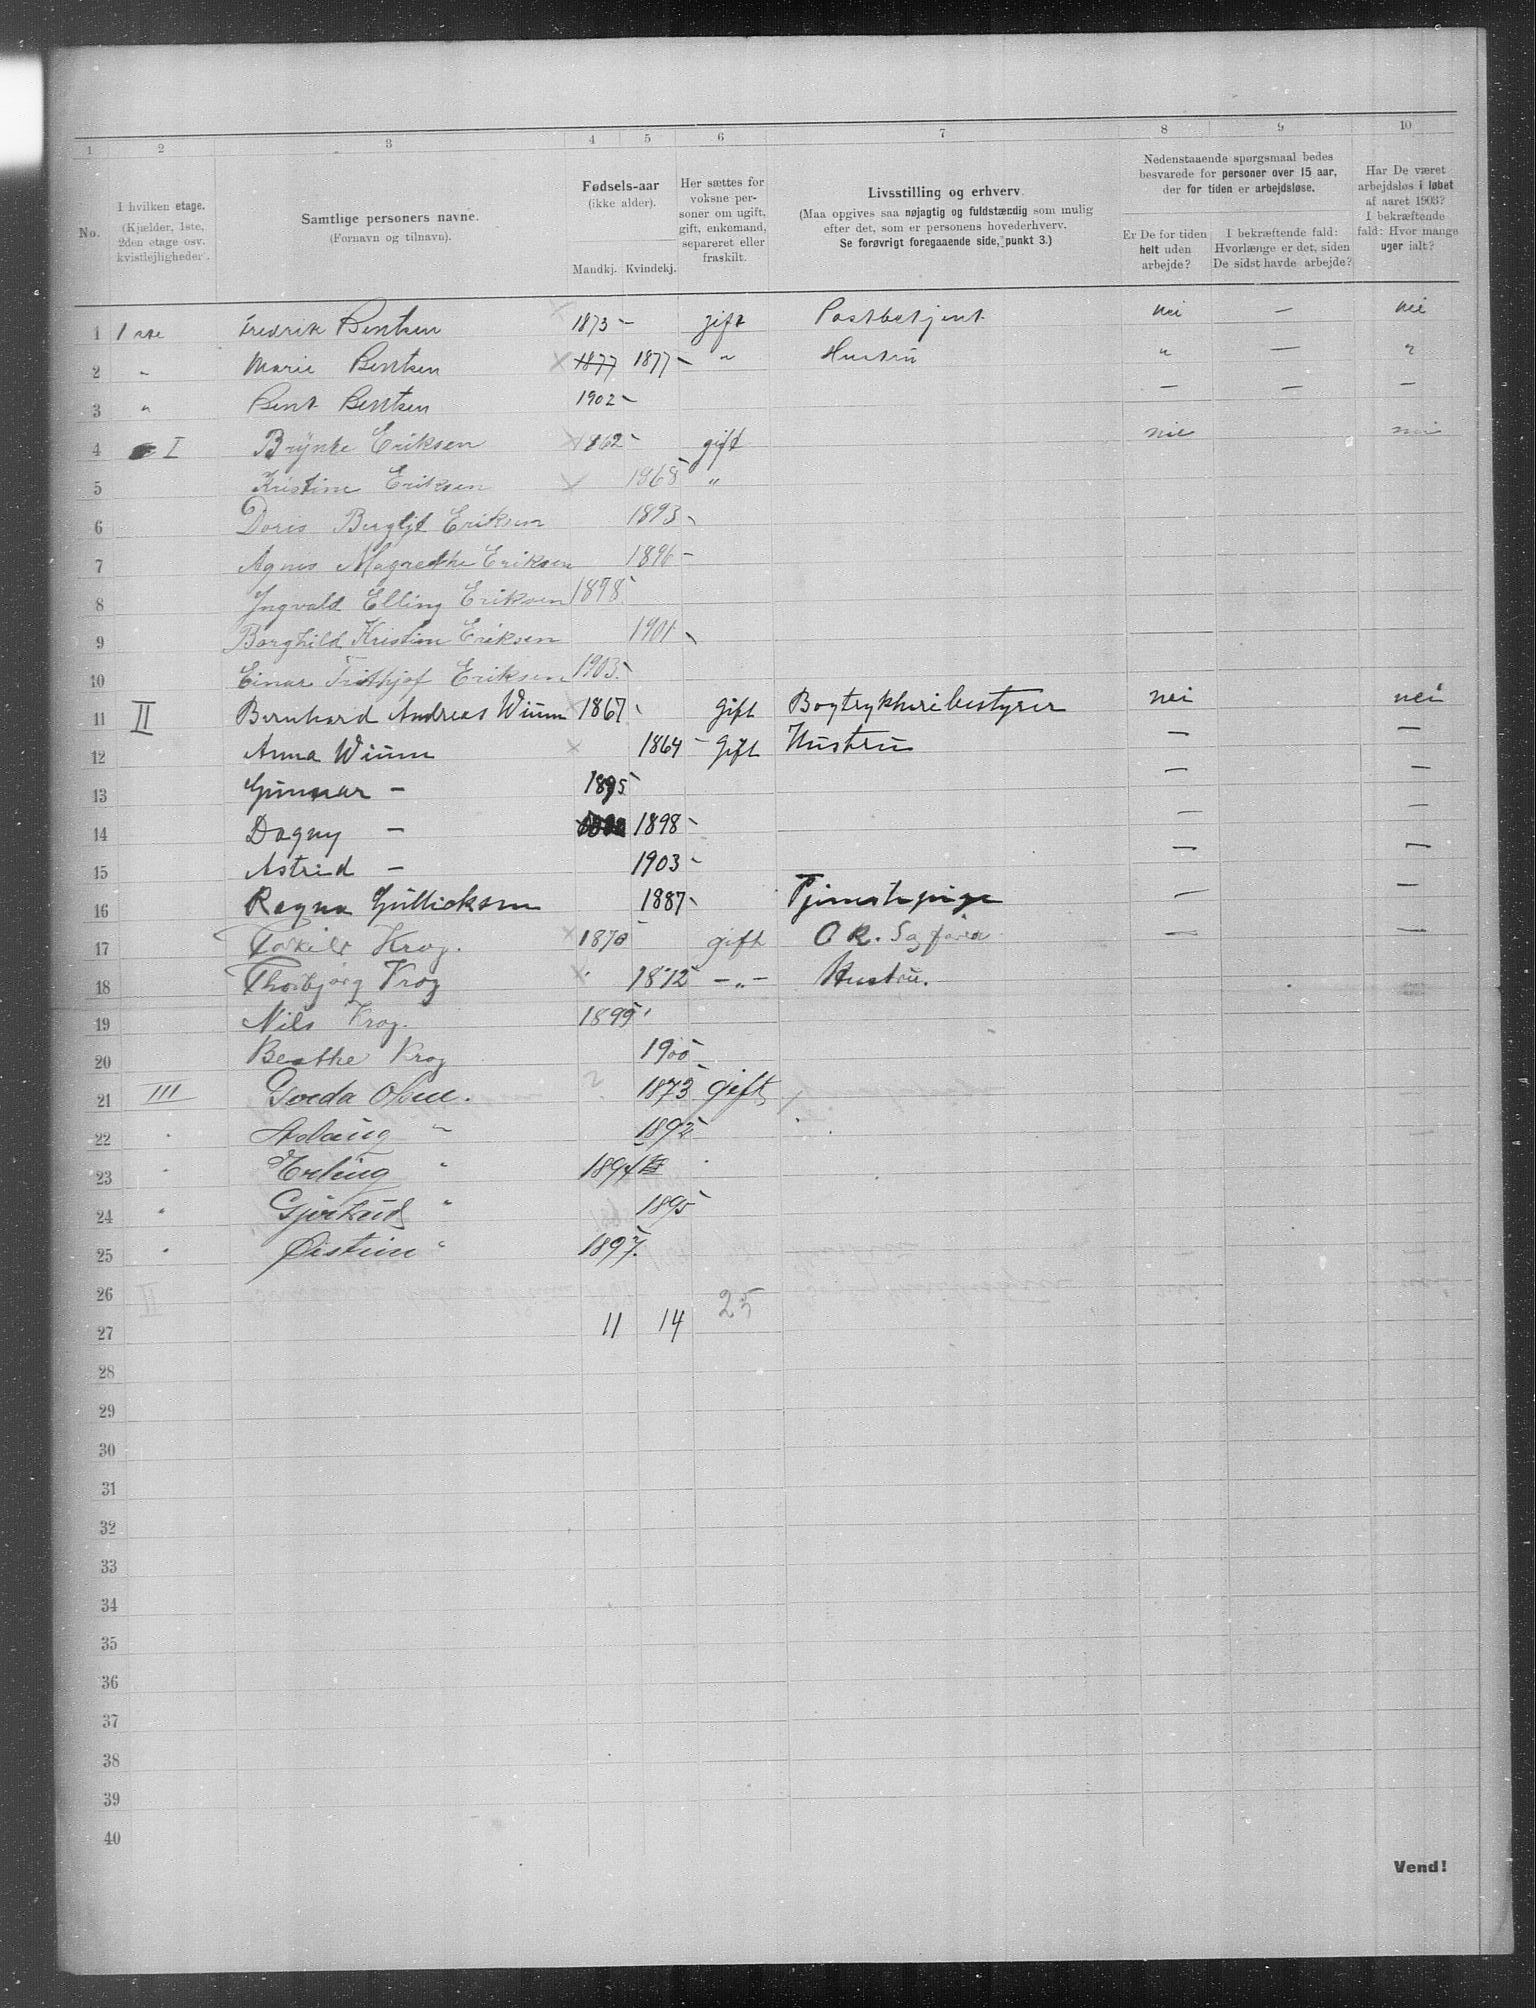 1 2 3 4 5 6 7 8 9 10
No.
I hvilken etage. (Kjælder, 1ste, 2den etage osv. kvistlejligheder).
Samtlige personers navne. (Fornavn og tilnavn).
Fødsels-aar (ikke alder). Mandkj. Kvindekj.
Her sættes for voksne personer om ugift, gift, enkemand, separeret eller fraskilt.
Livsstilling og erhverv. (Maa opgives saa nøjagtig og fuldstændig som mulig efter det, som er personens hovederhverv. Se forøvrigt foregaaende side, punkt 3.)
Nedenstaaende spørgsmaal bedes besvarede for personer over 15 aar, der for tiden er arbejdsløse.
Er De for tiden helt uden arbejde?
I bekræftende fald: Hvorlænge er det, siden De sidst havde arbejde?
Har De været arbejdsløs i løbet af aaret 1903? I bekræftende fald: Hvor mange uger ialt?
1 Fredrik Bentsen 1873 - gift Postbetjent nei — nei
2 " Marie Bentsen 1877 1877 - " Hustru " — "
3 " Bent Bentsen 1902 - — — —
4 I Brynte Eriksen 1862 - gift nei nei
5 Kristine Eriksen 1868 "
6 Doris Bergljt Eriksen 1893
7 Agnes Magrethe Eriksen 1896 -
8 Ingvald Elling Eriksen 1898
9 Borghild Kristine Eriksen 1901
10 Einar Frithjof Eriksen 1903
11 II Bernhard Andreas Wium 1867 gift Bogtrykkeribestyrer nei nei
12 Anna Wium 1864 - Gift Hustru — —
13 Gunnar - 1895 — —
14 Dagny - 1898 - — —
15 Astrid - 1903 - — —
16 Ragna Gulliksen 1887 - Tjenestepige — —
17 Torkild Krog. 1870 gift — —
18 Thorbjørg Krog 1872 - " - Hustru.
19 Nils Krog. 1899
20 Beathe Krog 1900
21 III Gerda Olsen. ? 1873 gift
22 " Aslaug " 1892
23 " Erling " 1894
24 " Gjertrud " 1895
25 " Øistein " 1897.
26 25
27 11 14
28
29
30
31
32
33
34
35
36
37
38
39
40
Vend!